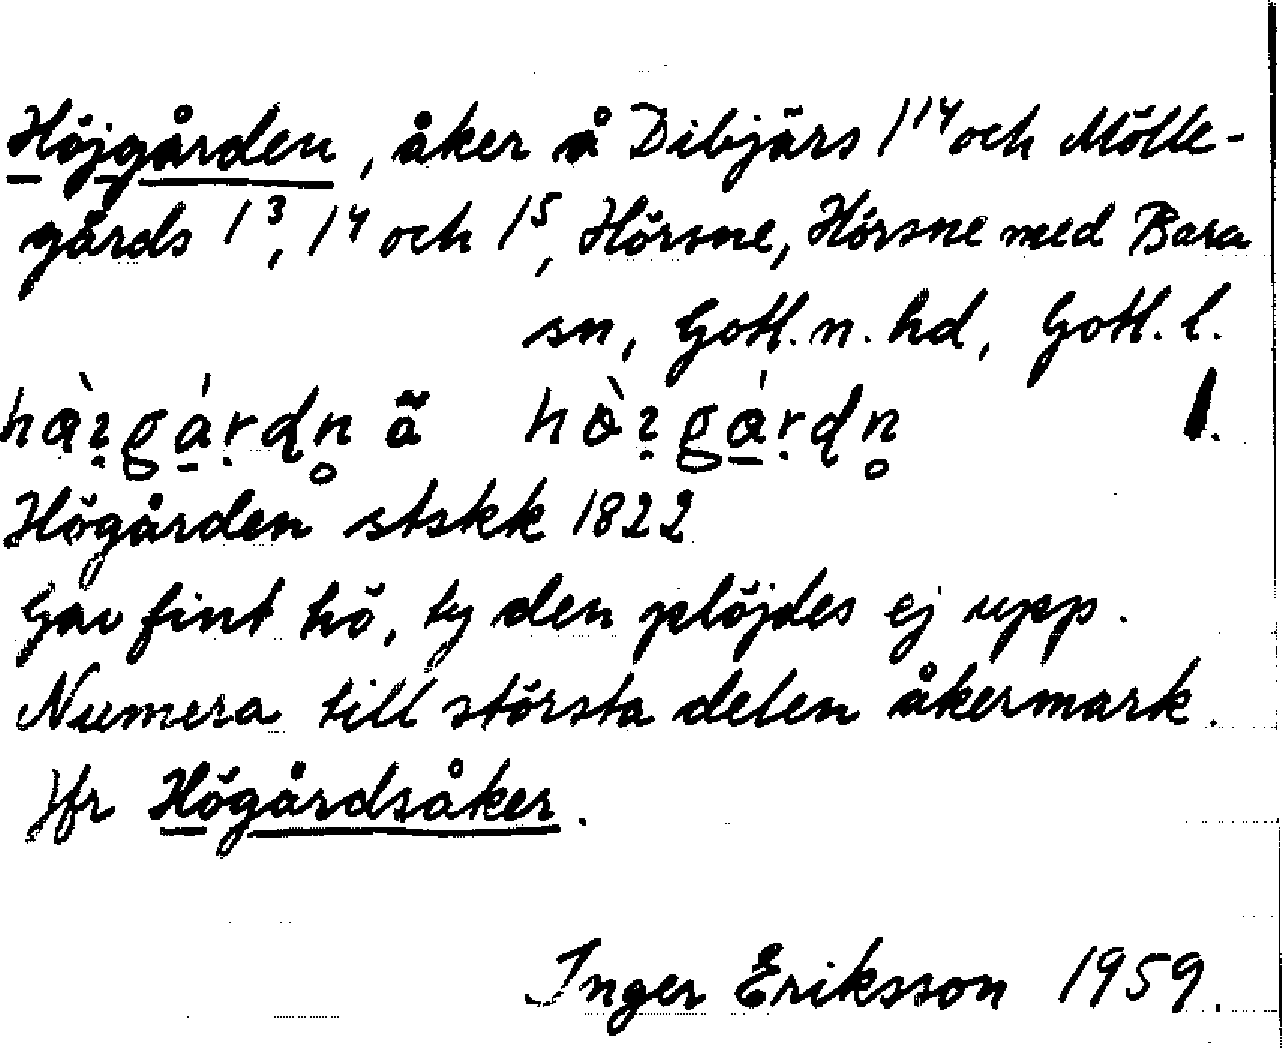 Höjgården, åker å Dibjärs 1¹⁴ och Mölle-
gårds 1³, 1⁴ och 1⁵, Hörsne, Hörsne med Bara
sn, Gotl. n. hd, Gotl. l.
ä
Högården stskk 1822
Gav fint hö, ty den plöjdes ej upp.
Numera till största delen åkermark.
Jfr Högårdsåker.
Inger Eriksson 1959.